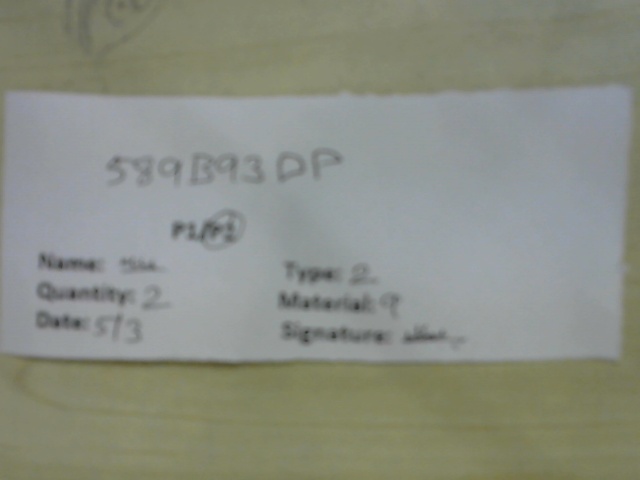 589B93DP
P1/P2
Name:
Quantity: 2
Date: 5/3
Type: 2
Material: 9
Signature: